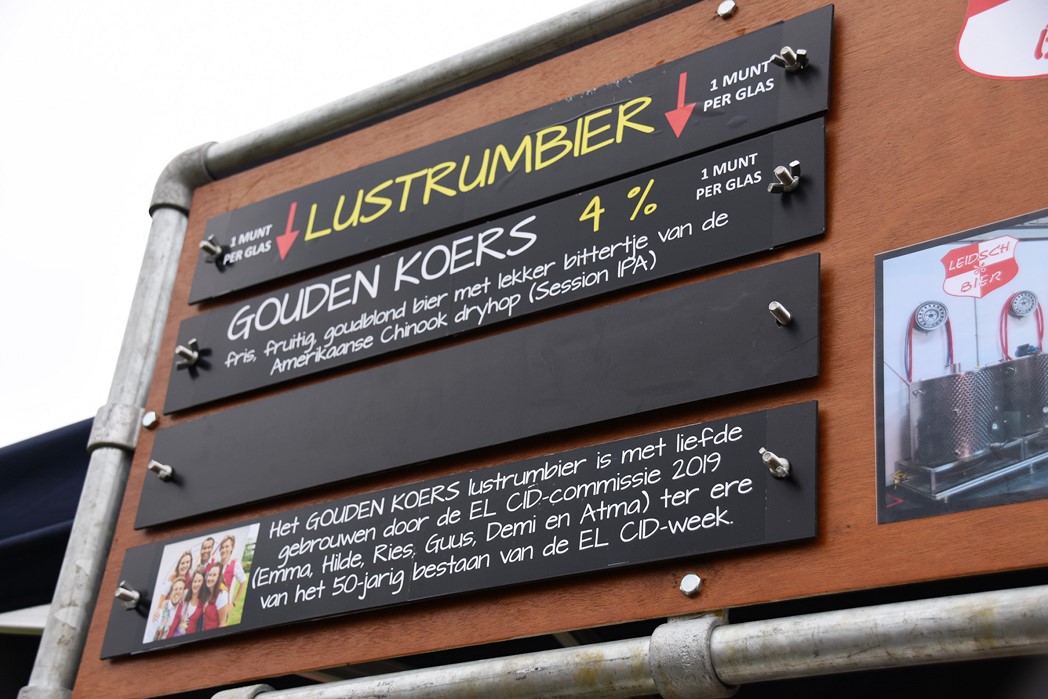 1 MUNT
PER GLAS
LUSTRUMBIER
1 MUNT
PER GLAS
GOUDEN KOERS 4 %
1 MUNT
PER GLAS
fris, fruitig, goudblond bier met lekker bittertje van de
Amerikaanse Chinook dryhop (Session IPA)
Het GOUDEN KOERS lustrumbier is met liefde
gebrouwen door de EL CID-commissie 2019
(Emma, Hilde, Ries, Guus, Demi en Atma) ter ere
van het 50-jarig bestaan van de EL CID-week.
LEIDSCH
BIER